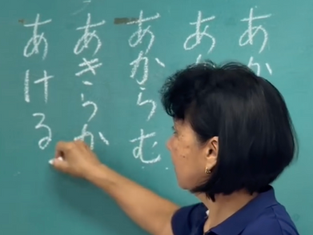 あか
あ
あからむ
あきらか
あける